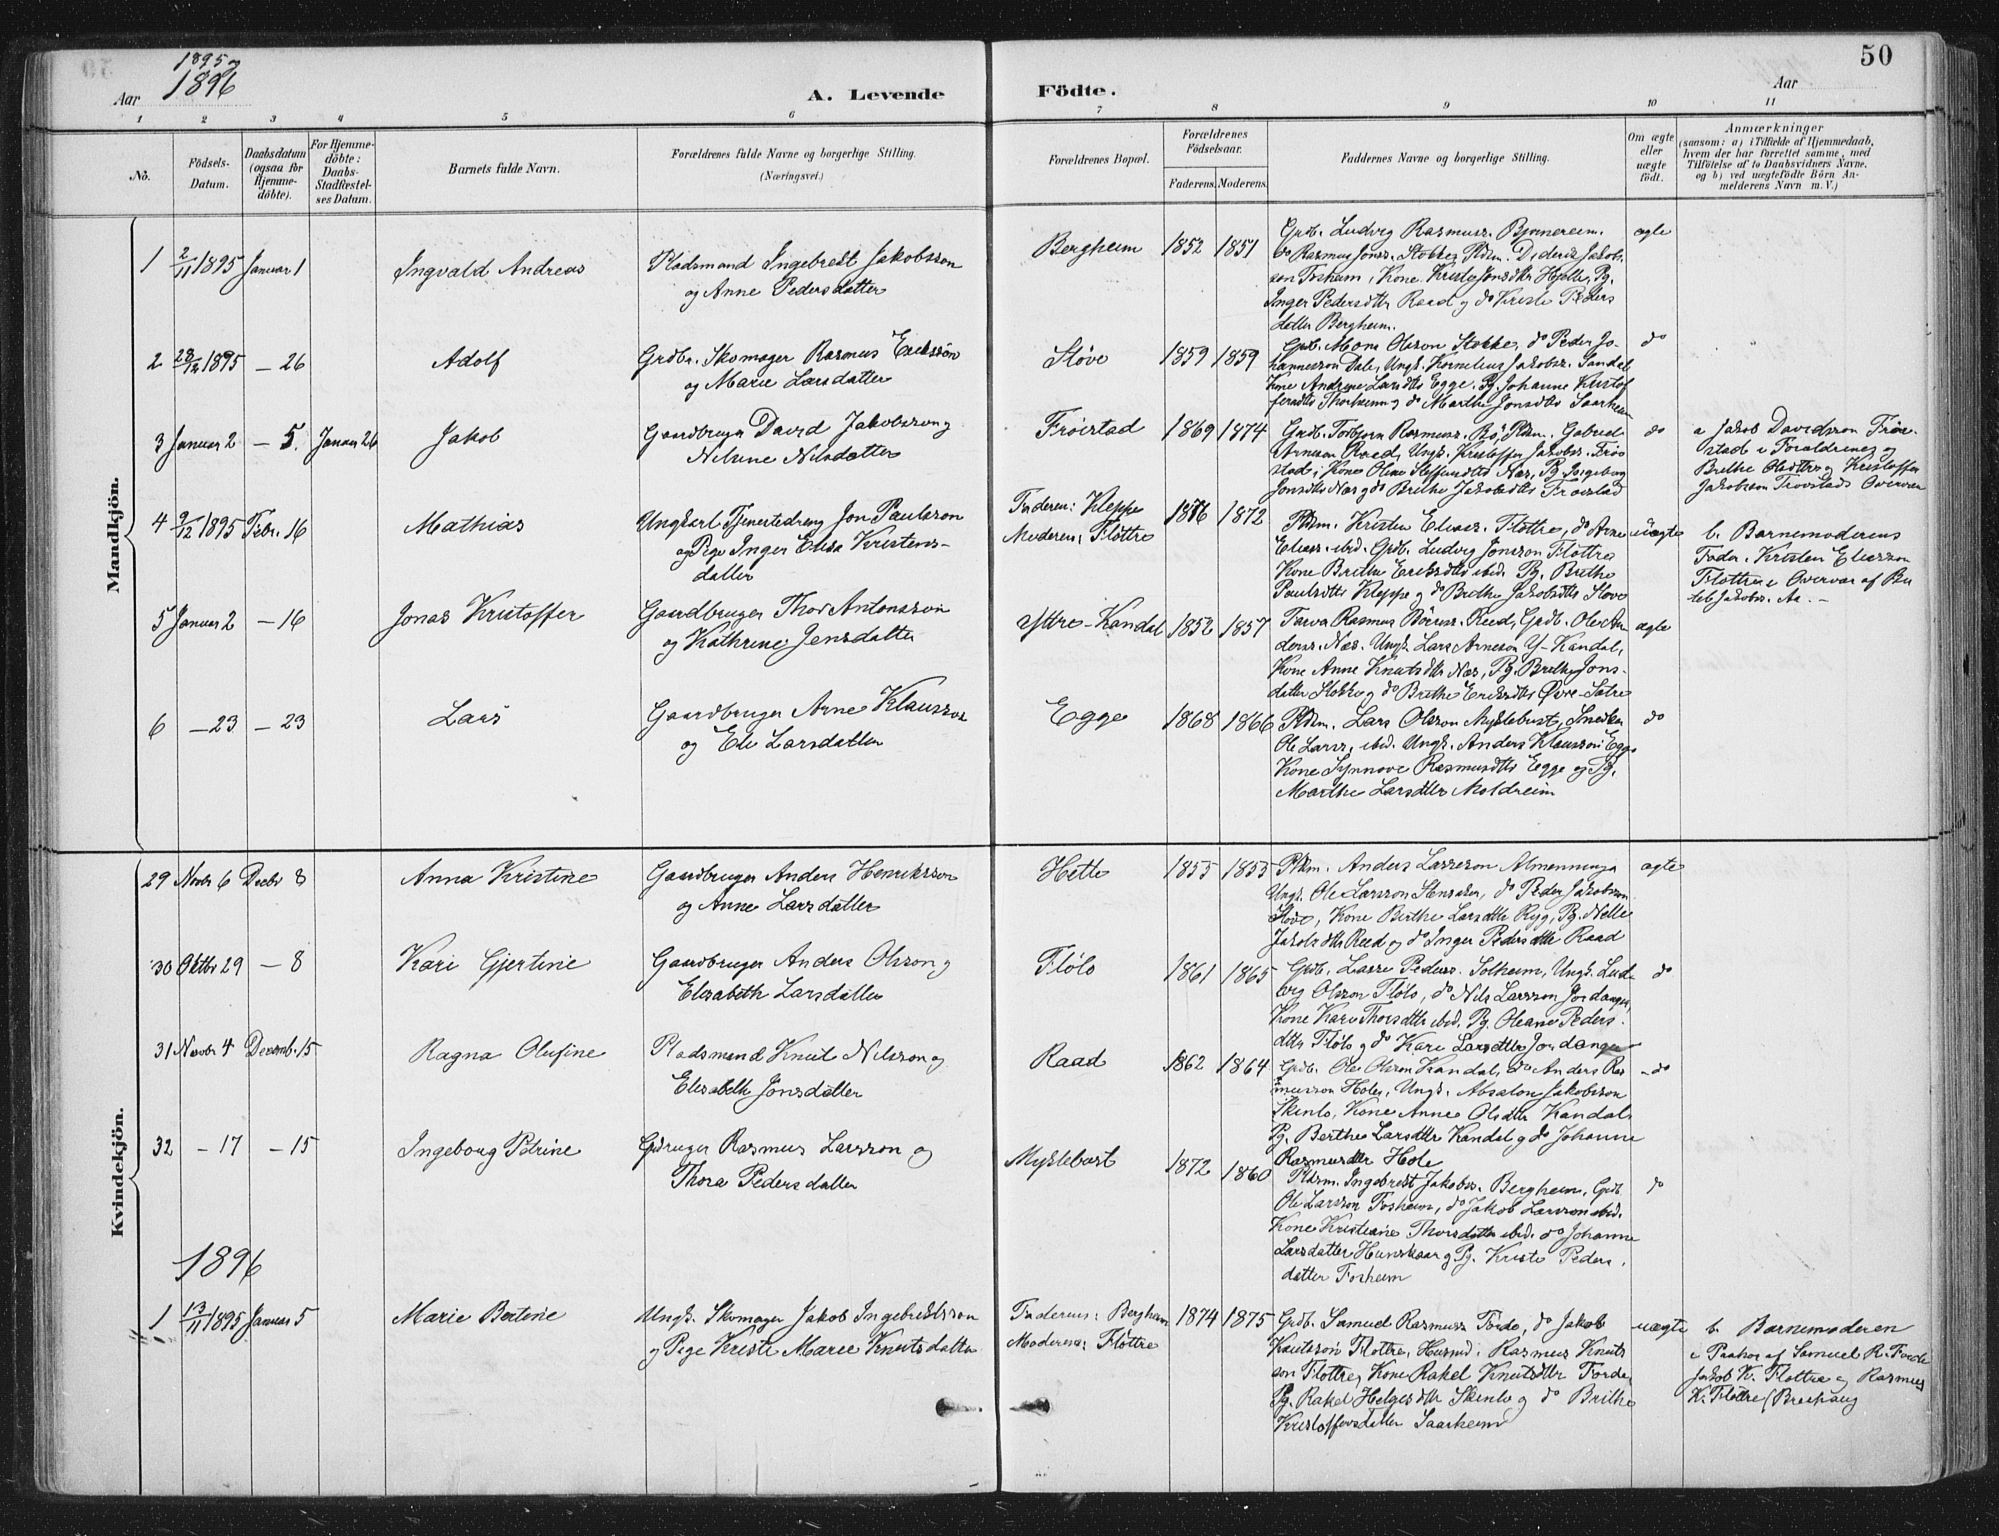 50
1895 og
Aar 1896
A. Levende Födte.
Aar
1 2 3 4 5 6 7 8 9 10 11
No.
Födsels-Datum.
Daabsdatum (ogsaa for Hjemmedöbte).
For Hjemmedöbte: Daabs-Stadfæstelses Datum.
Barnets fulde Navn.
Forældrenes fulde Navne og borgerlige Stilling.
(Næringsvei.)
Forældrenes Bopæl.
Forældrenes Födselsaar.
Faderens. Moderens.
Faddernes Navne og borgerlige Stilling.
Om ægte eller uægte födt.
Anmærkninger
(saasom: a) i Tilfælde af Hjemmedaab, hvem der har forrettet samme, med Tilföielse af to Daabsvidners Navne, og b) ved uægtefödte Börn Anmelderens Navn m. V.)
Mandkjön.
1 2/11 1895 Januar 1 Ingvald Andreas
Pladsmand Ingebrigt Jakobsson
og Anne Pedersdatter
Bergheim 1852 1851
Grdb. Ludvig Rasmuss. Bjnnereim.
do Rasmus Jonss. Stokke, Pldsm. Diderik Jakobs-
son Fosheim, Kone Kristi Jonsdtr Hjelle, Pg.
Inger Pedersdtr Raad og do Kristi Peders
datter Bergheim.
ægte
2 28/12 1895 — 26 Adolf
Grdbr. Skomager Rasmus Eriksson
og Marie Larsdatter
Støve 1859 1859
Grdb. Mons Olsson Stokke, do Peder Jo-
hannesson Dale, Ungk. Kornelius Jakobss. Sandal
Kone Andrine Larsdtr Egge, Pg. Johanne Kristof
fersdtr Thorheim og do Marthe Jonsdtr Saarheim
do
3 Januar 2 — 5. Januar 26 Jakob
Gaardbruger David Jakobsson og
Nilsine Nilsdatter
Frøistad 1869 1874
Grdb. Torbjørn Rasmuss. Bö, Pldsm. Gabriel
Arneson Raad, Ungk. Kristoffer Jakobss. Frøi
stad, Kone Oline Steffensdtr Næs, Pg. Ingeborg
Jonsdtr Næs og do Brithe Jakobsdtr Frøistad
do
a Jakob Davidsson Frøi-
stad i Forældrenes og
Brithe Olsdtr og Kristoffer
Jakobson Frøistads Overvær
4 9/12 1895 Febr. 16 Mathias
Ungkarl Tjenestedreng Jon Paulsson
og Pige Inger Elisa Kristens-
datter
Faderens: Kleppe
Moderens: Fløttre
1876 1872
Pldsm. Kristen Eliass. Fløttre, do Arne
Eliass. ibid. Grdb. Ludvig Jonsson Fløttre
Kone Brithe Eriksdtr ibid. Pg. Brithe
Paulsdtr Kleppe og do Brithe Jakobsdtr Støve
uægte
b. Barnemoderens
Fader Kristen Eliasson
Fløttre i Overvær af
Jakobss. Aa. —
5 Januar 2 — 16 Jonas Kristoffer
Gaardbruger Thor Antonsson
og Kathrine Jensdatter
Yttre-Kandal 1852 1857
Farva Rasmus Reed, Grdb. Ole An
derss. Næs. Ungk. Lars Arneson Y-Kandal,
Kone Anne Knutsdtr Næs, Pg. Brithe Jons-
datter Stokke og do Brithe Eriksdtr Øvre-Sætre
ægte
6 — 23 — 23 Lars
Gaardbruger Arne Klausson
og Eli Larsdatter
Egge 1868 1866
Pldsm. Lars Olsson Myklebust, Snedker
Ole Larss. ibid. Ungk. Anders Klausson Egge
Kone Synnove Rasmusdtr Egge og Pg.
Marthe Larsdtr Moldreim
do
Kvindekjön.
29 Novbr 6 Decbr 8 Anna Kristine
Gaardbruger Anders Henriksson
og Anne Larsdatter
Hette 1855 1853
Pldsm. Anders Lasseson Almenninga
Ungk. Ole Larsson Stensaker, do Peder Jakobsson
Støve, Kone Brithe Larsdtr Ryg, Pg. Nelle
Jakobsdtr Reed og do Inger Pedersdtr Raad
ægte
30 Oktbr 29 — 8 Kari Gjertine
Gaardbruger Anders Olsson og
Elisabeth Larsdatter
Fløllo 1861 1865
Grdb. Lasse Pederss. Solheim, Ungk. Lud-
vig Olsson Fløllo, do Nils Larsson Jordanger,
Kone Kari Thorsdtr ibid. Pg. Oleane Peders-
dtr Fløllo og do Kari Larsdtr Jordanger
do
31 Novbr 4 Decemb. 15 Ragna Olufine
Pladsmand Knut Nilsson og
Elisabeth Jonsdatter
Raad 1862 1864
Grdb. Ole Olsson Kandal, do Anders Ras
musson Hole, Ungk. Absalon Jakobsson
Skinlo, Kone Anne Olsdtr Kandal
Pg. Berthe Larsdtr Kandal og do Johanne
Rasmusdtr Hole
do
32 — 17 — 15 Ingeborg Petrine
Gbruger Rasmus Larsson og
Thora Pedersdatter
Myklebust 1872 1860
Pldsm. Ingebrigt Jakobss. Bergheim, Grdb.
Ole Larsson Fosheim, do Jakob Larsson ibid.
Kone Kristiane Thorsdatter ibid. do Johanne
Larsdatter Hunskaar og Pg. Kristi Peders-
datter Fosheim
do
1896
1 13/11 1895 Januar 5 Marie Bertine
Ungk. Skomager Jakob Ingebrigtsson
og Pige Kristi Marie Knutsdatter
Faderens: Bergheim
Moderens: Fløttre
1874 1875
Grdb. Samuel Rasmuss Førde, do Jakob
Knutsson Fløttre, Husmd. Rasmus Knuts
son Fløttre, Kone Rakel Knutsdtr Førde
Pg. Rakel Helgesdtr Skinlo og do Brithe
Kristoffersdatter Saarheim
uægte
b. Barnemoderen
i Paahør af Samuel R. Førde
Jakob K. Fløttre og Rasmus
K. Fløttre (Breihaug